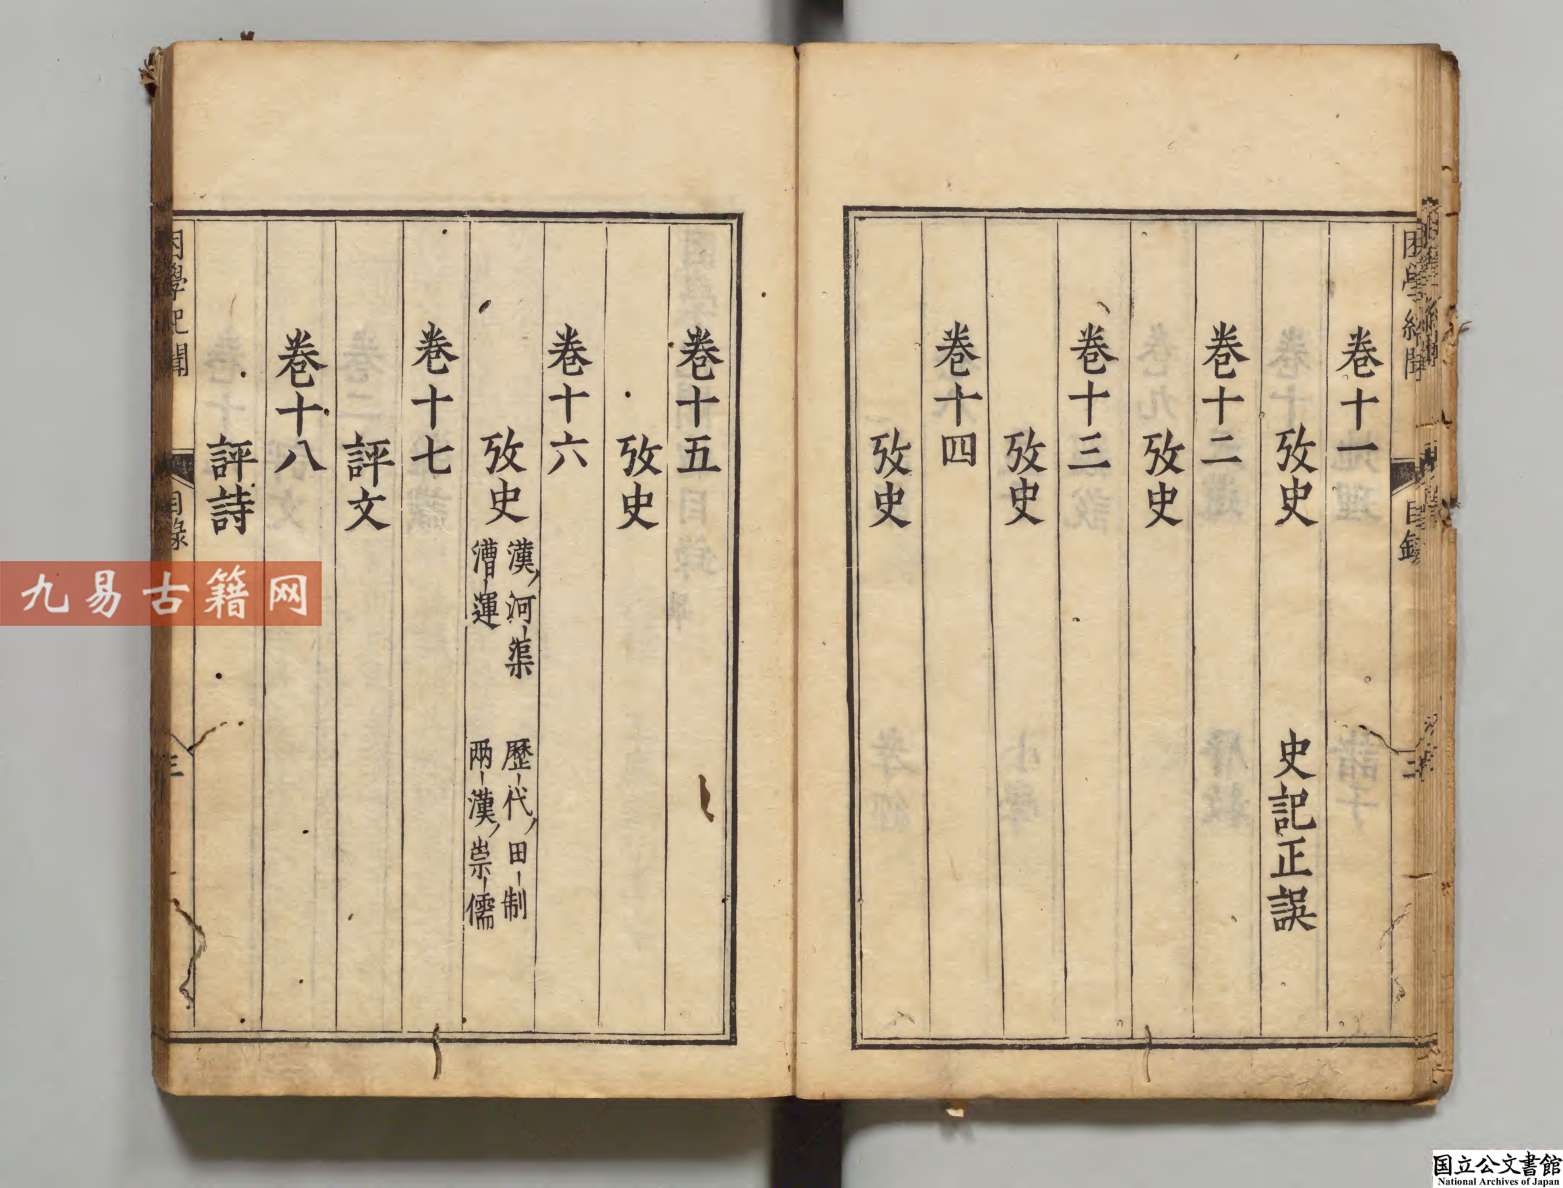 困學紀聞 目錄 三
卷十一
攷史 史記正誤
卷十二
攷史
卷十三
攷史
卷十四
攷史
卷十五
攷史
卷十六
攷史 漢河渠 歷代田制
漕運 兩漢崇儒
卷十七
評文
卷十八
評詩
困學紀聞 目錄 三
九易古籍网
国立公文書館
National Archives of Japan